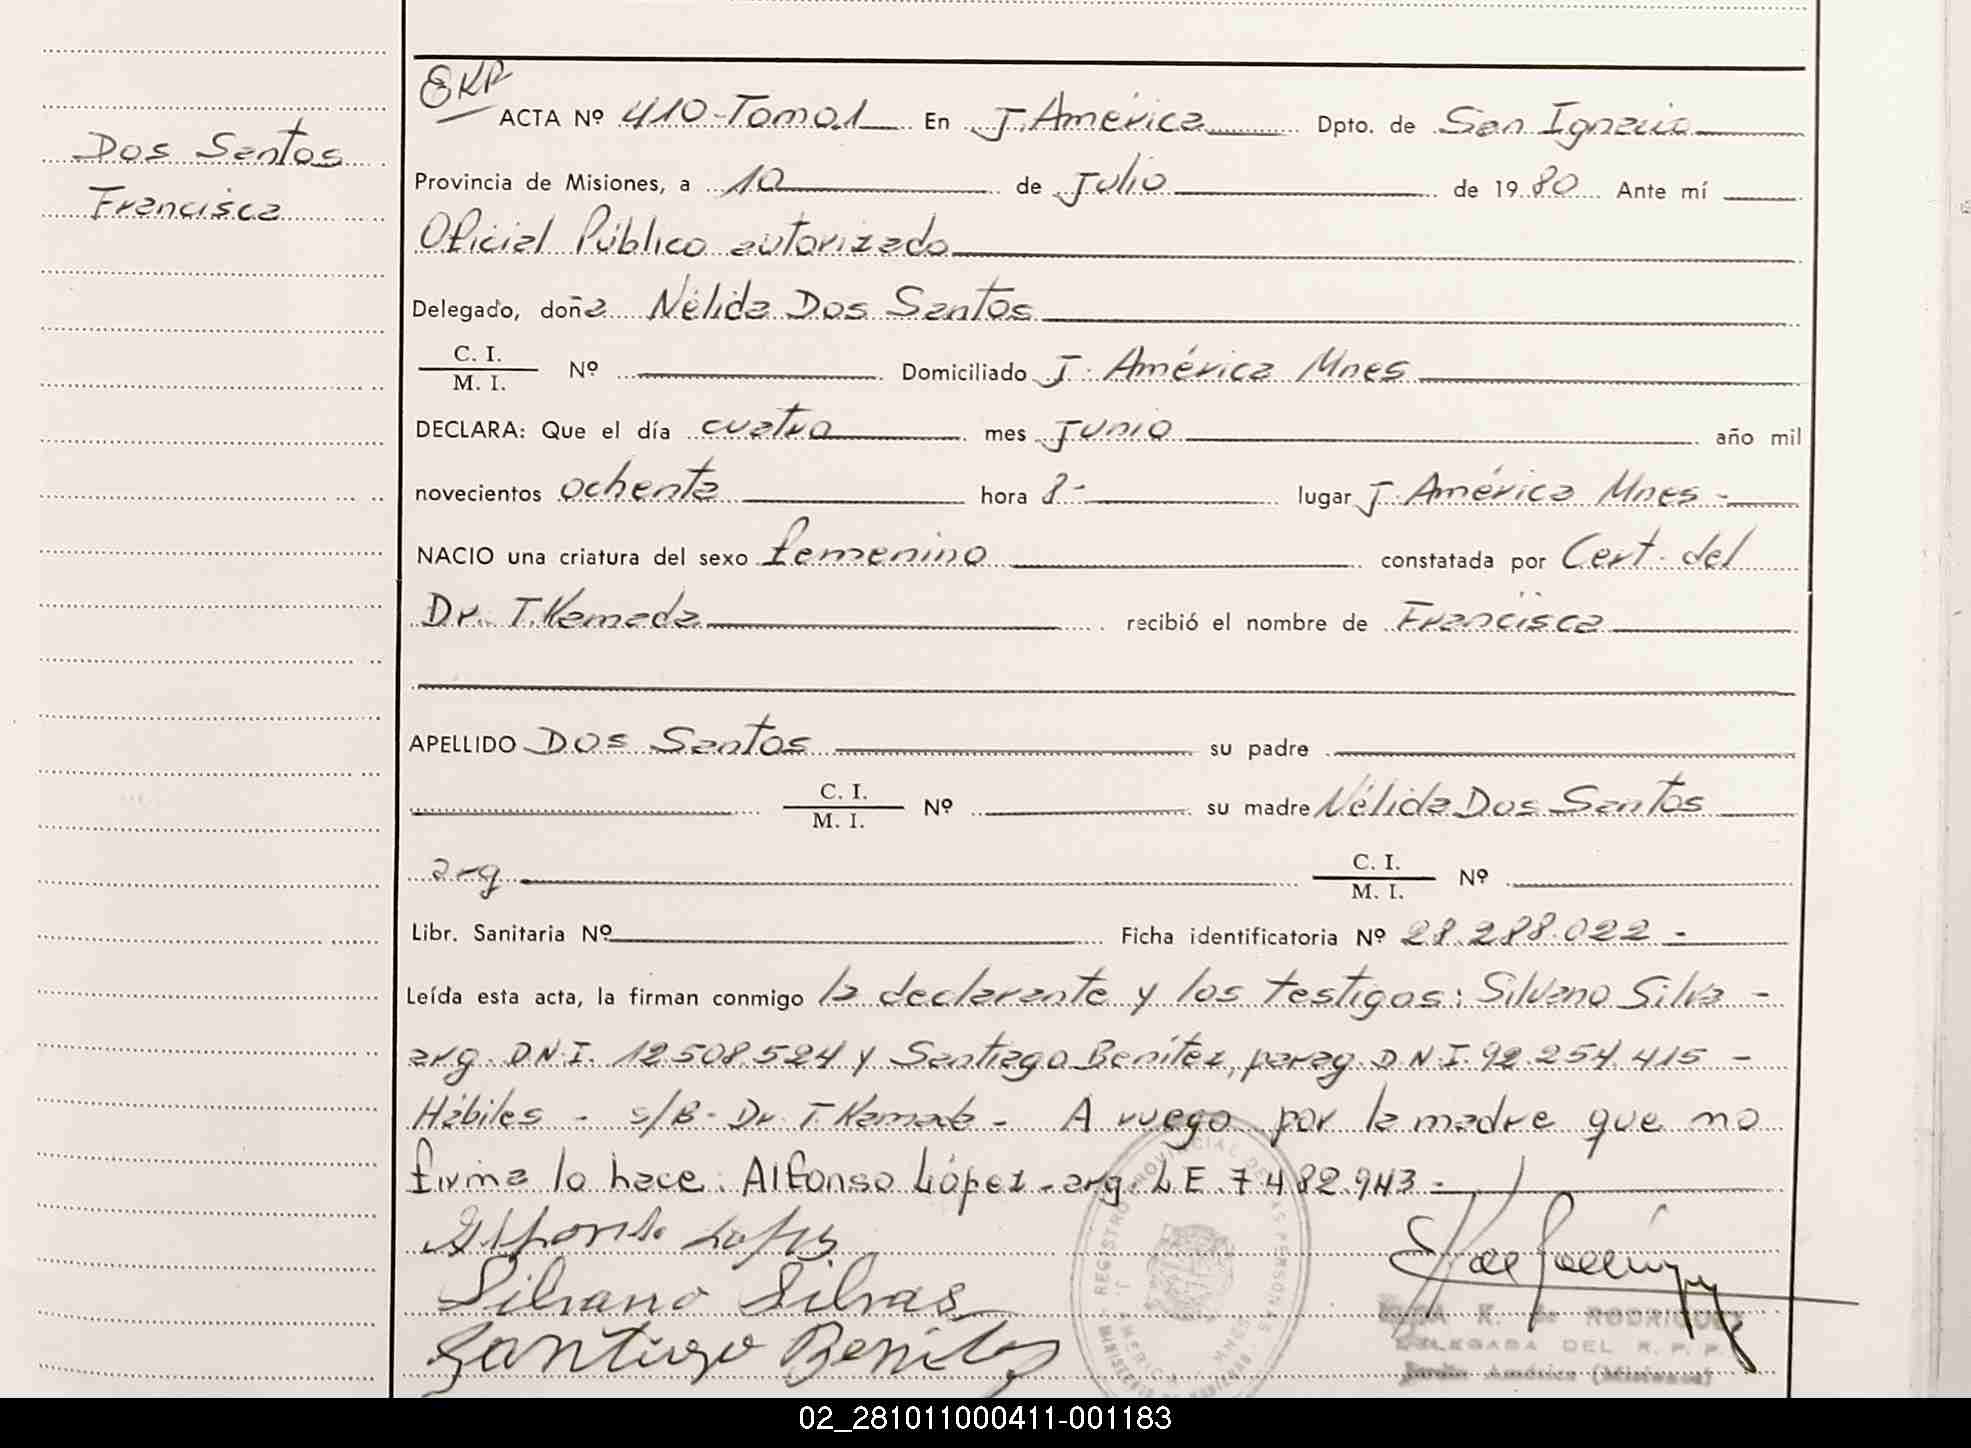 Dos Santos
Francisca
ACTA Nº 410-Tomo 1 En J. América Dpto. de San Ignacio
Provincia de Misiones, a 10 de Julio de 1980 Ante mí
Oficial Público autorizado
Delegado, doña Nélida Dos Santos
C. I.
M. I. Nº Domiciliado J. América Mnes
DECLARA: Que el día cuatro mes Junio año mil
novecientos ochenta hora 8- lugar J. América Mnes -
NACIO una criatura del sexo femenino constatada por Cert. del
Dr. T. Kamada recibió el nombre de Francisca
APELLIDO Dos Santos su padre
C. I.
M. I. Nº su madre Nélida Dos Santos
arg C. I.
M. I. Nº
Libr. Sanitaria Nº Ficha identificatoria Nº 28.288.022 -
Leída esta acta, la firman conmigo la declarante y los testigos: Silvano Silva -
arg. D.N.I. 12.508.524 y Santiago Benítez, parag. D.N.I. 92.254.415 -
Hábiles - s/B- Dr. T. Kamada - A ruego por la madre que no
firma lo hace: Alfonso López - arg. L.E. 7.482.943 -
Alfonso
Silvano Silvas
Santiago Benites
REGISTRO PROVINCIAL DE LAS PERSONAS
J. AMERICA MNES
K. de RODRIGUEZ
DELEGADA DEL R. P. P.
Jardín América (Misiones)
02_281011000411-001183